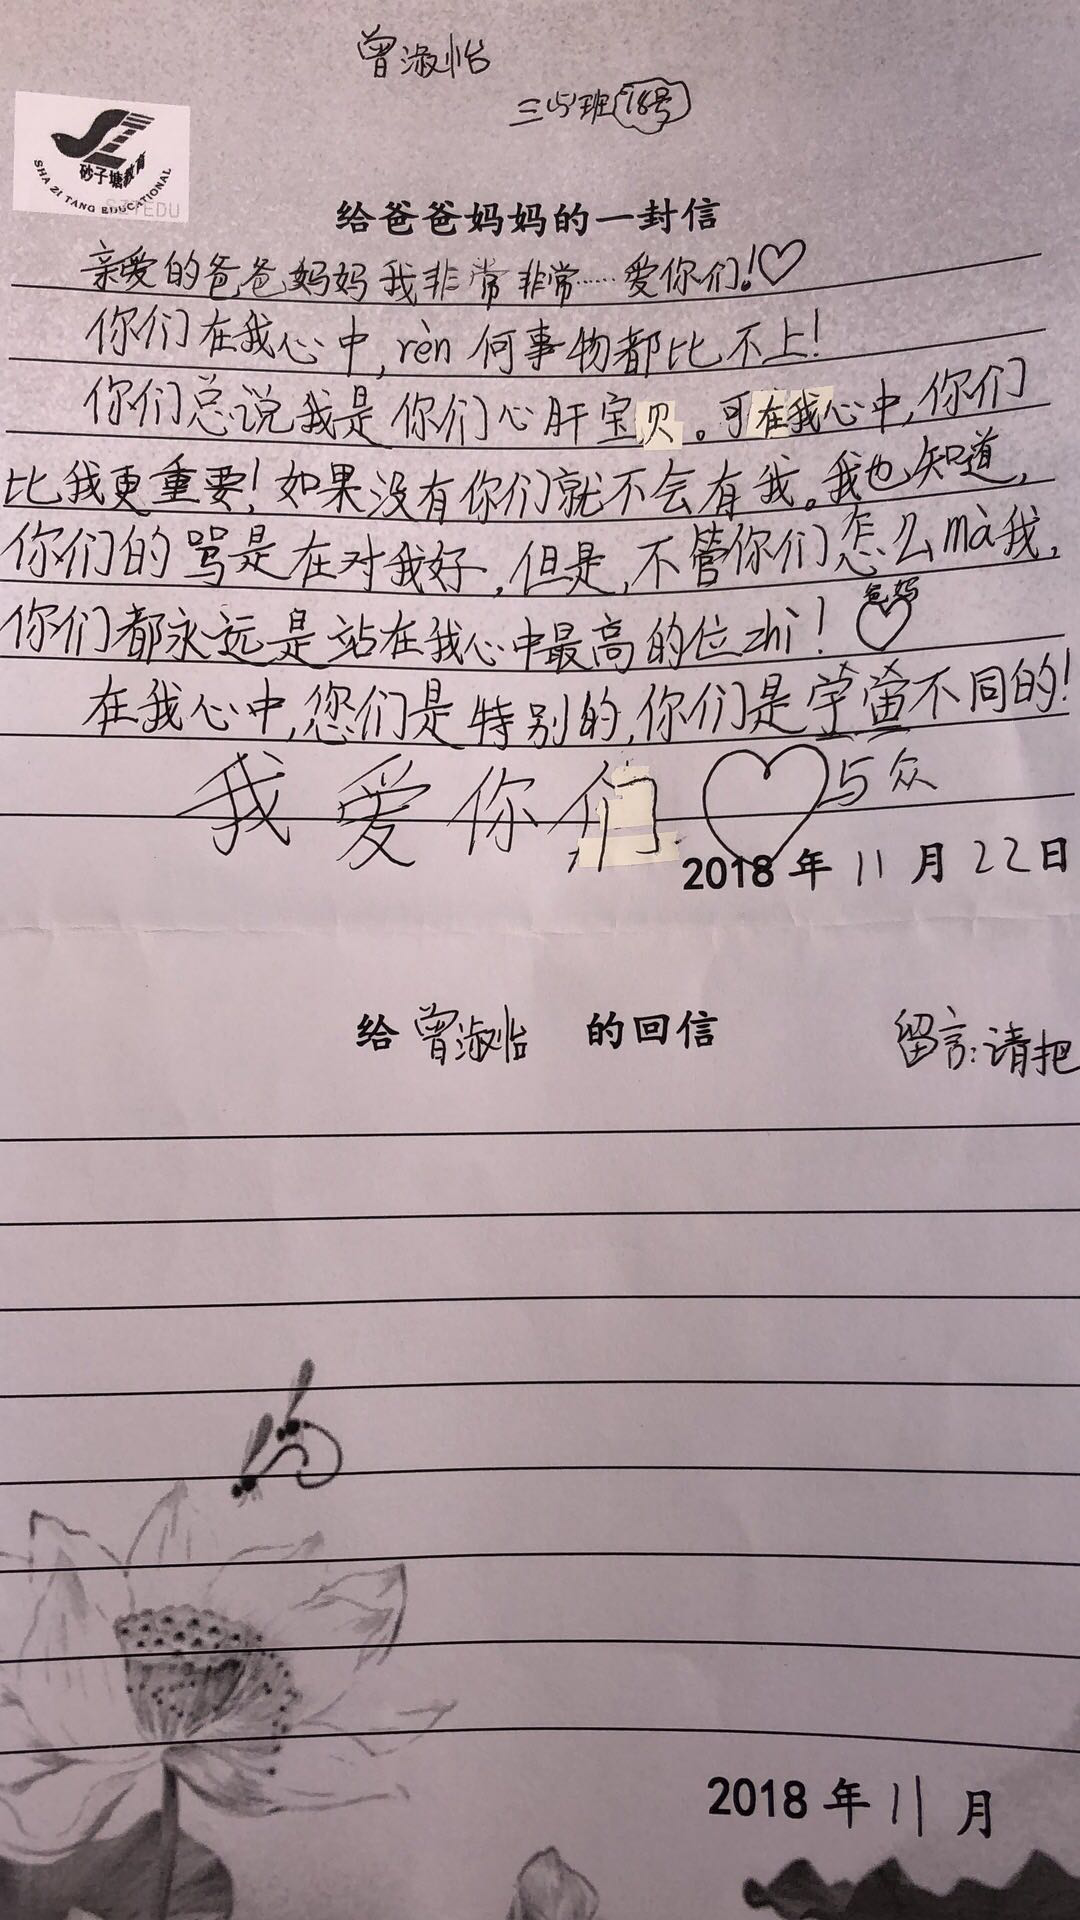 曾淑怡
三(5)班 18号
砂子塘教育
SHA ZI TANG EDUCATIONAL
SZTEDU
给爸爸妈妈的一封信
亲爱的爸爸妈妈我非常非常……爱你们!♡
你们在我心中,rèn何事物都比不上!
你们总说我是你们心肝宝贝。可在我心中,你们
比我更重要!如果没有你们就不会有我。我也知道,
你们的骂是在对我好,但是,不管你们怎么mà我,
爸妈
你们都永远是站在我心中最高的位zhì!♡
在我心中,您们是特别的,你们是与众不同的!
我爱你们♡ 与众
2018年11月22日
给曾淑怡的回信
留言:请把
2018年11月